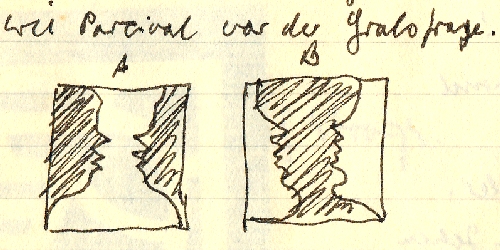 wie Parcival vor der Gralsfrage.
A B